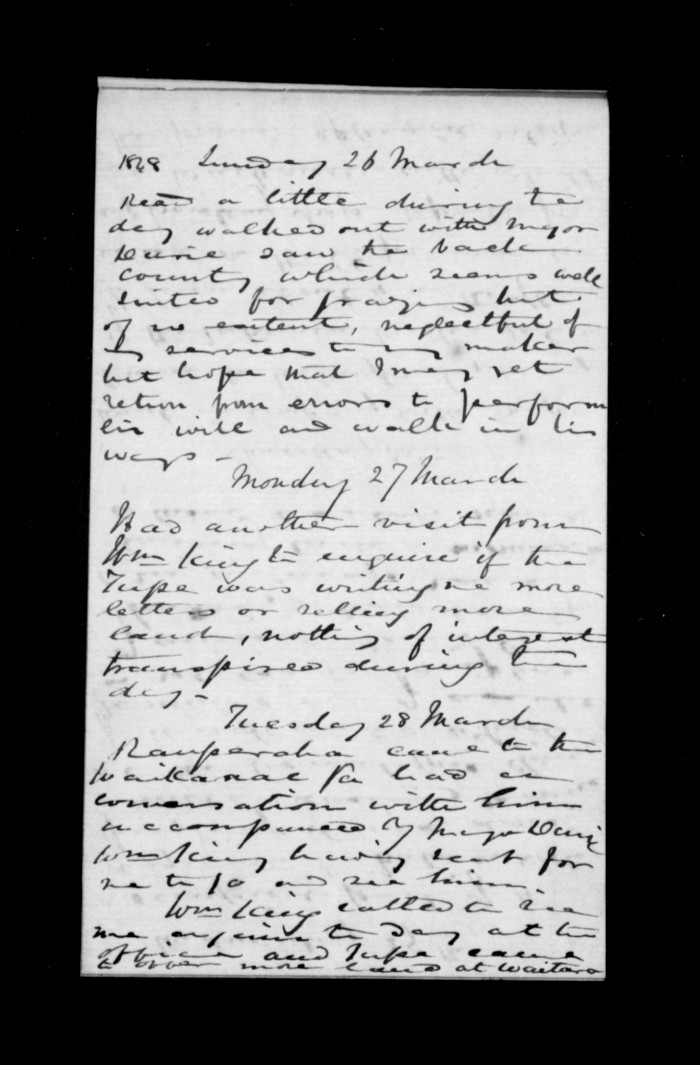 1848 Sunday 26 March
Read a little during the
day walked out with Major
Durie saw the back
country which seems well
suited for grazing but
of no extent, neglectful of
my services to my maker
but hope that I may yet
return from errors to perform
his will and walk in his
ways -
Monday 27 March
Had another visit from
Wm King to enquire if the
Tupe was writing me more
letters or selling more
land, nothing of interest
transpired during the
day -
Tuesday 28 March
Rauperaha came to the
Waikanae Pa had a
conversation with him
accompanied by Major Durie
Wm King having sent for
me to go and see him
Wm King called to see
me again to day at the
office and Tupe came
to offer more land at Waitara